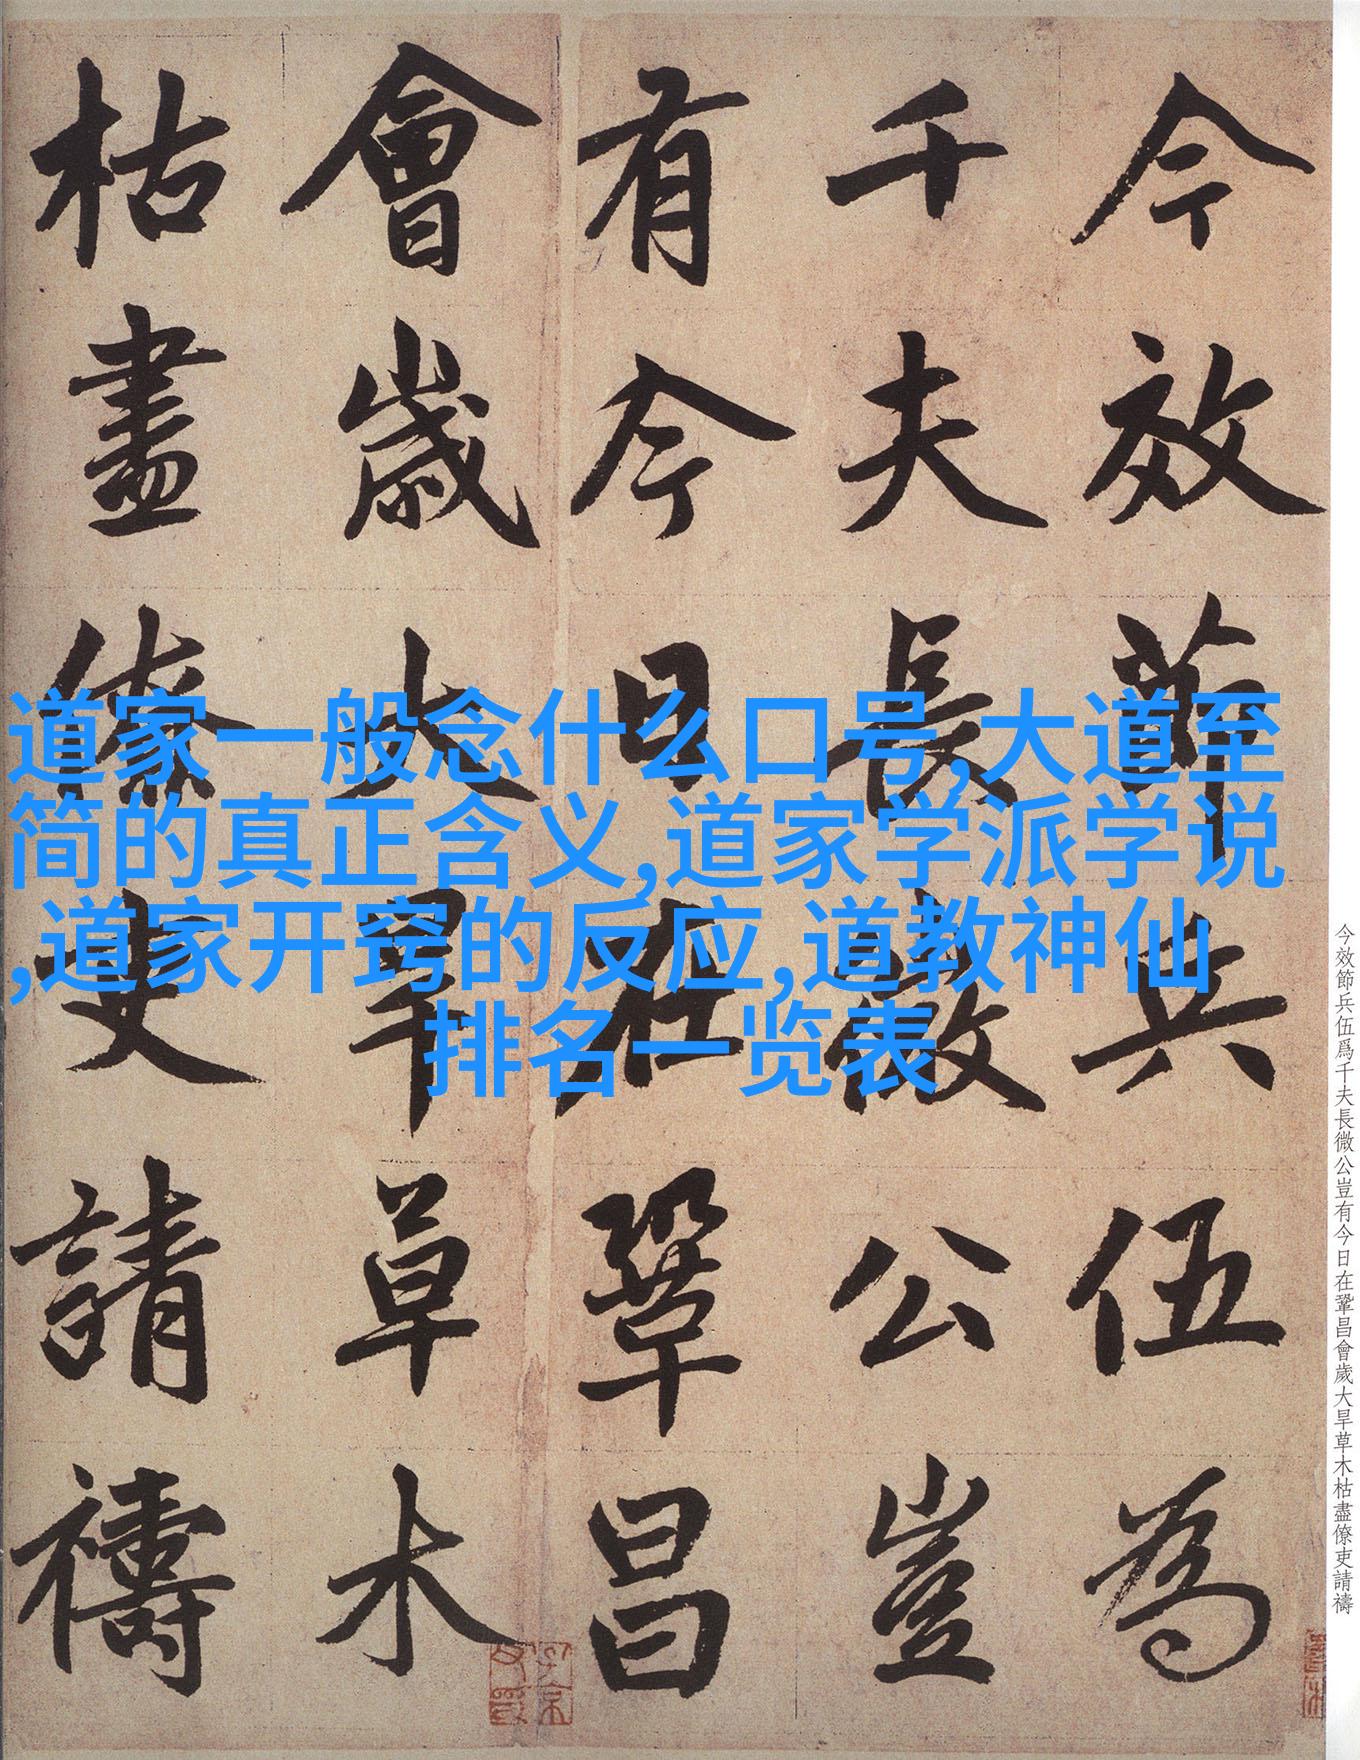 今效節兵伍為
千夫長微公豈
有今日在鞏昌
會歲大旱草木
枯盡僚吏請禱
道家一般念什么口号,大道至
简的真正含义,道家学派学说
,道家开窍的反应,道教神仙
排名一览表
今效節兵伍爲千夫長微公豈有今日在鞏昌會歲大旱草木枯盡僚吏請禱